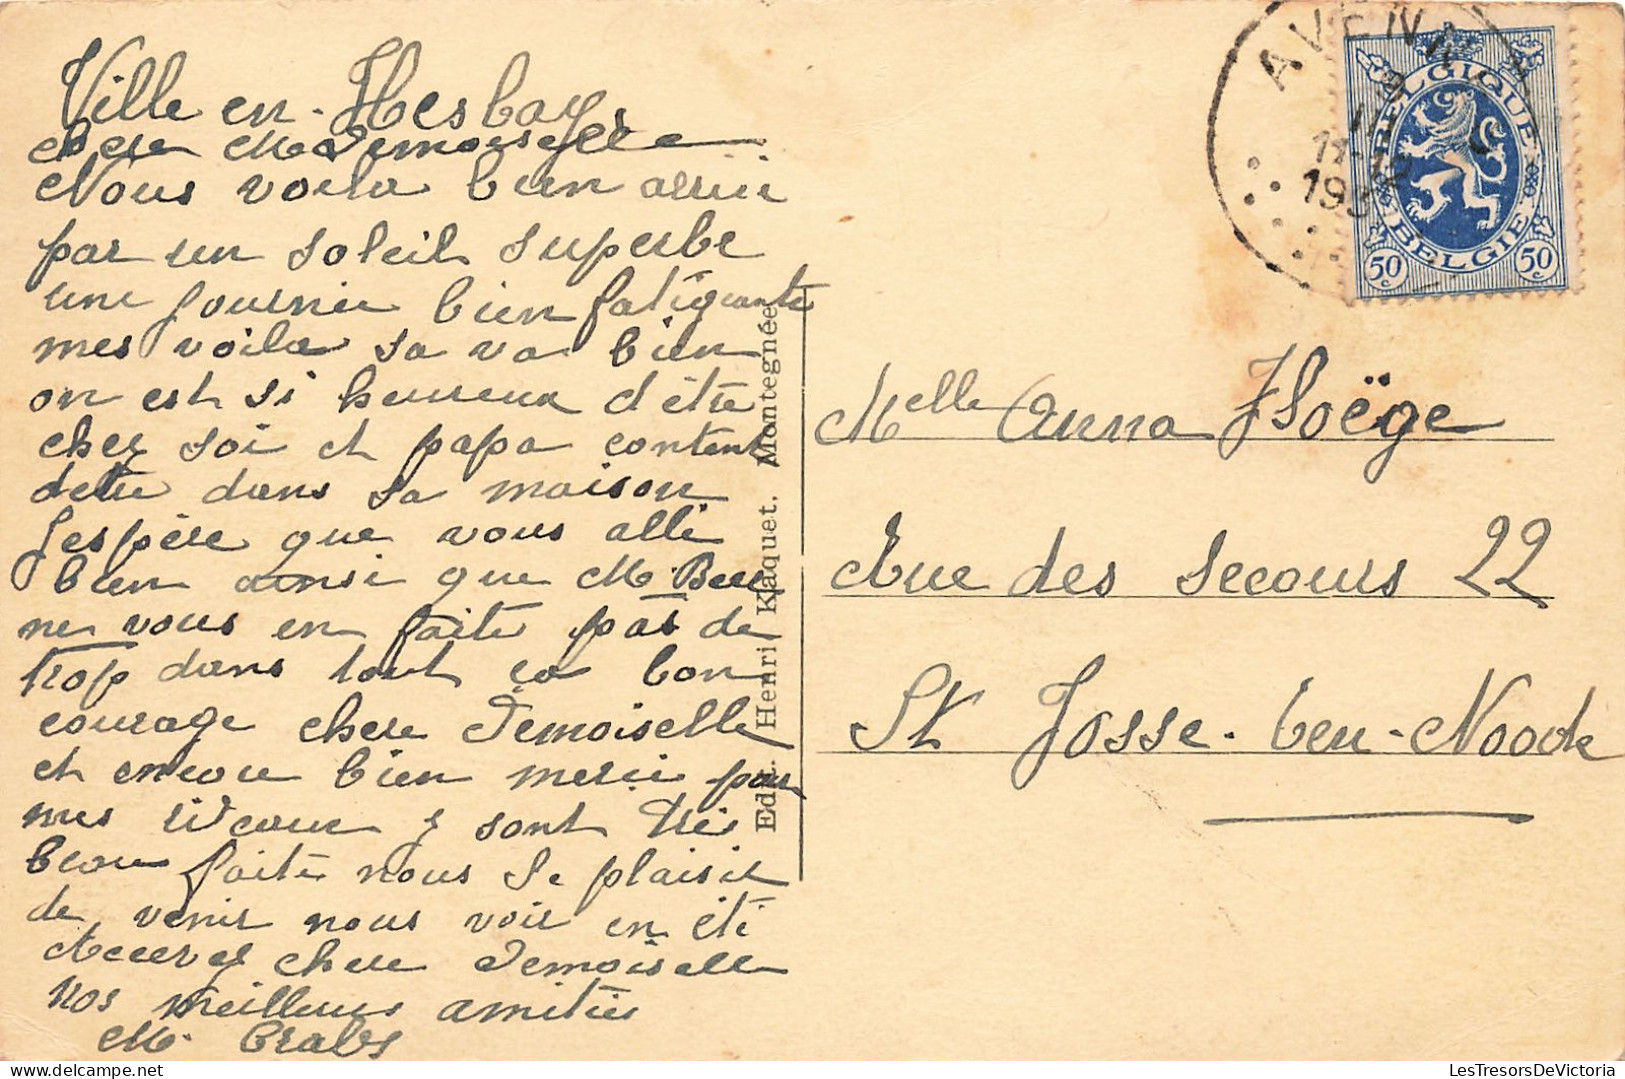 Ville en Hesbaye
chere Mademoiselle
Nous voila bien arrive
par un soleil superbe
une journee bien fatiguante
mes voila sa va bien
on est si heureux d'être
chez soi et papa content
detre dans sa maison
J'espère que vous alle
bien ainsi que M.
ne vous en faite pas de
trop dans tout ça bon
courage chere Demoiselle
et encore bien merci pour
mes rideaux y sont tres
beau faite nous le plaisir
de venir nous voir en été
Recevez chere Demoiselle
Nos meilleures amitiés
M. Crabs
Edit. Henri Kaquet. Montegnée
AVENN
11-12
193
BELGIQUE
BELGIE
50 c
50 c
Melle Anna Hoëge
Rue des Secours 22
St Josse-ten-Noode
LesTresorsDeVictoria.com